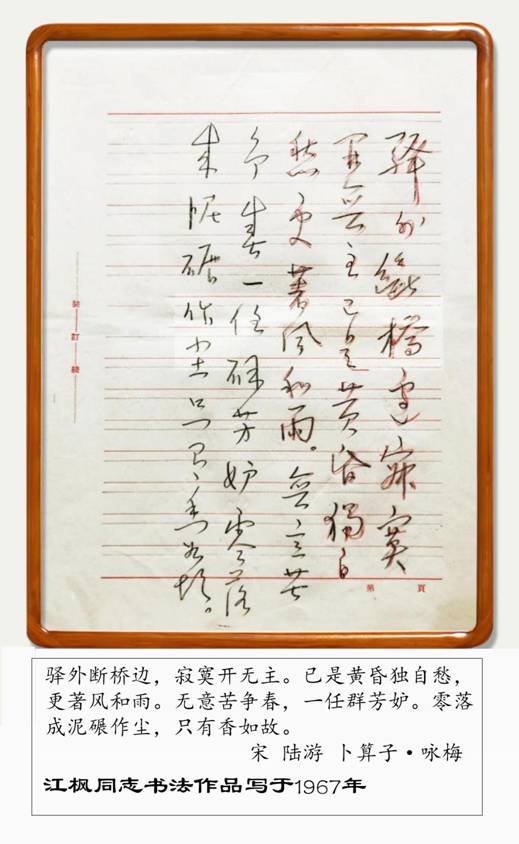 驛外斷橋邊寂寞
開無主已是黃昏獨自
愁更著風和雨。無意苦
爭春一任群芳妒零落
成泥碾作尘只有香如故。
装訂綫
第 頁
驿外断桥边，寂寞开无主。已是黄昏独自愁，
更著风和雨。无意苦争春，一任群芳妒。零落
成泥碾作尘，只有香如故。
宋 陆游 卜算子·咏梅
江枫同志书法作品写于1967年